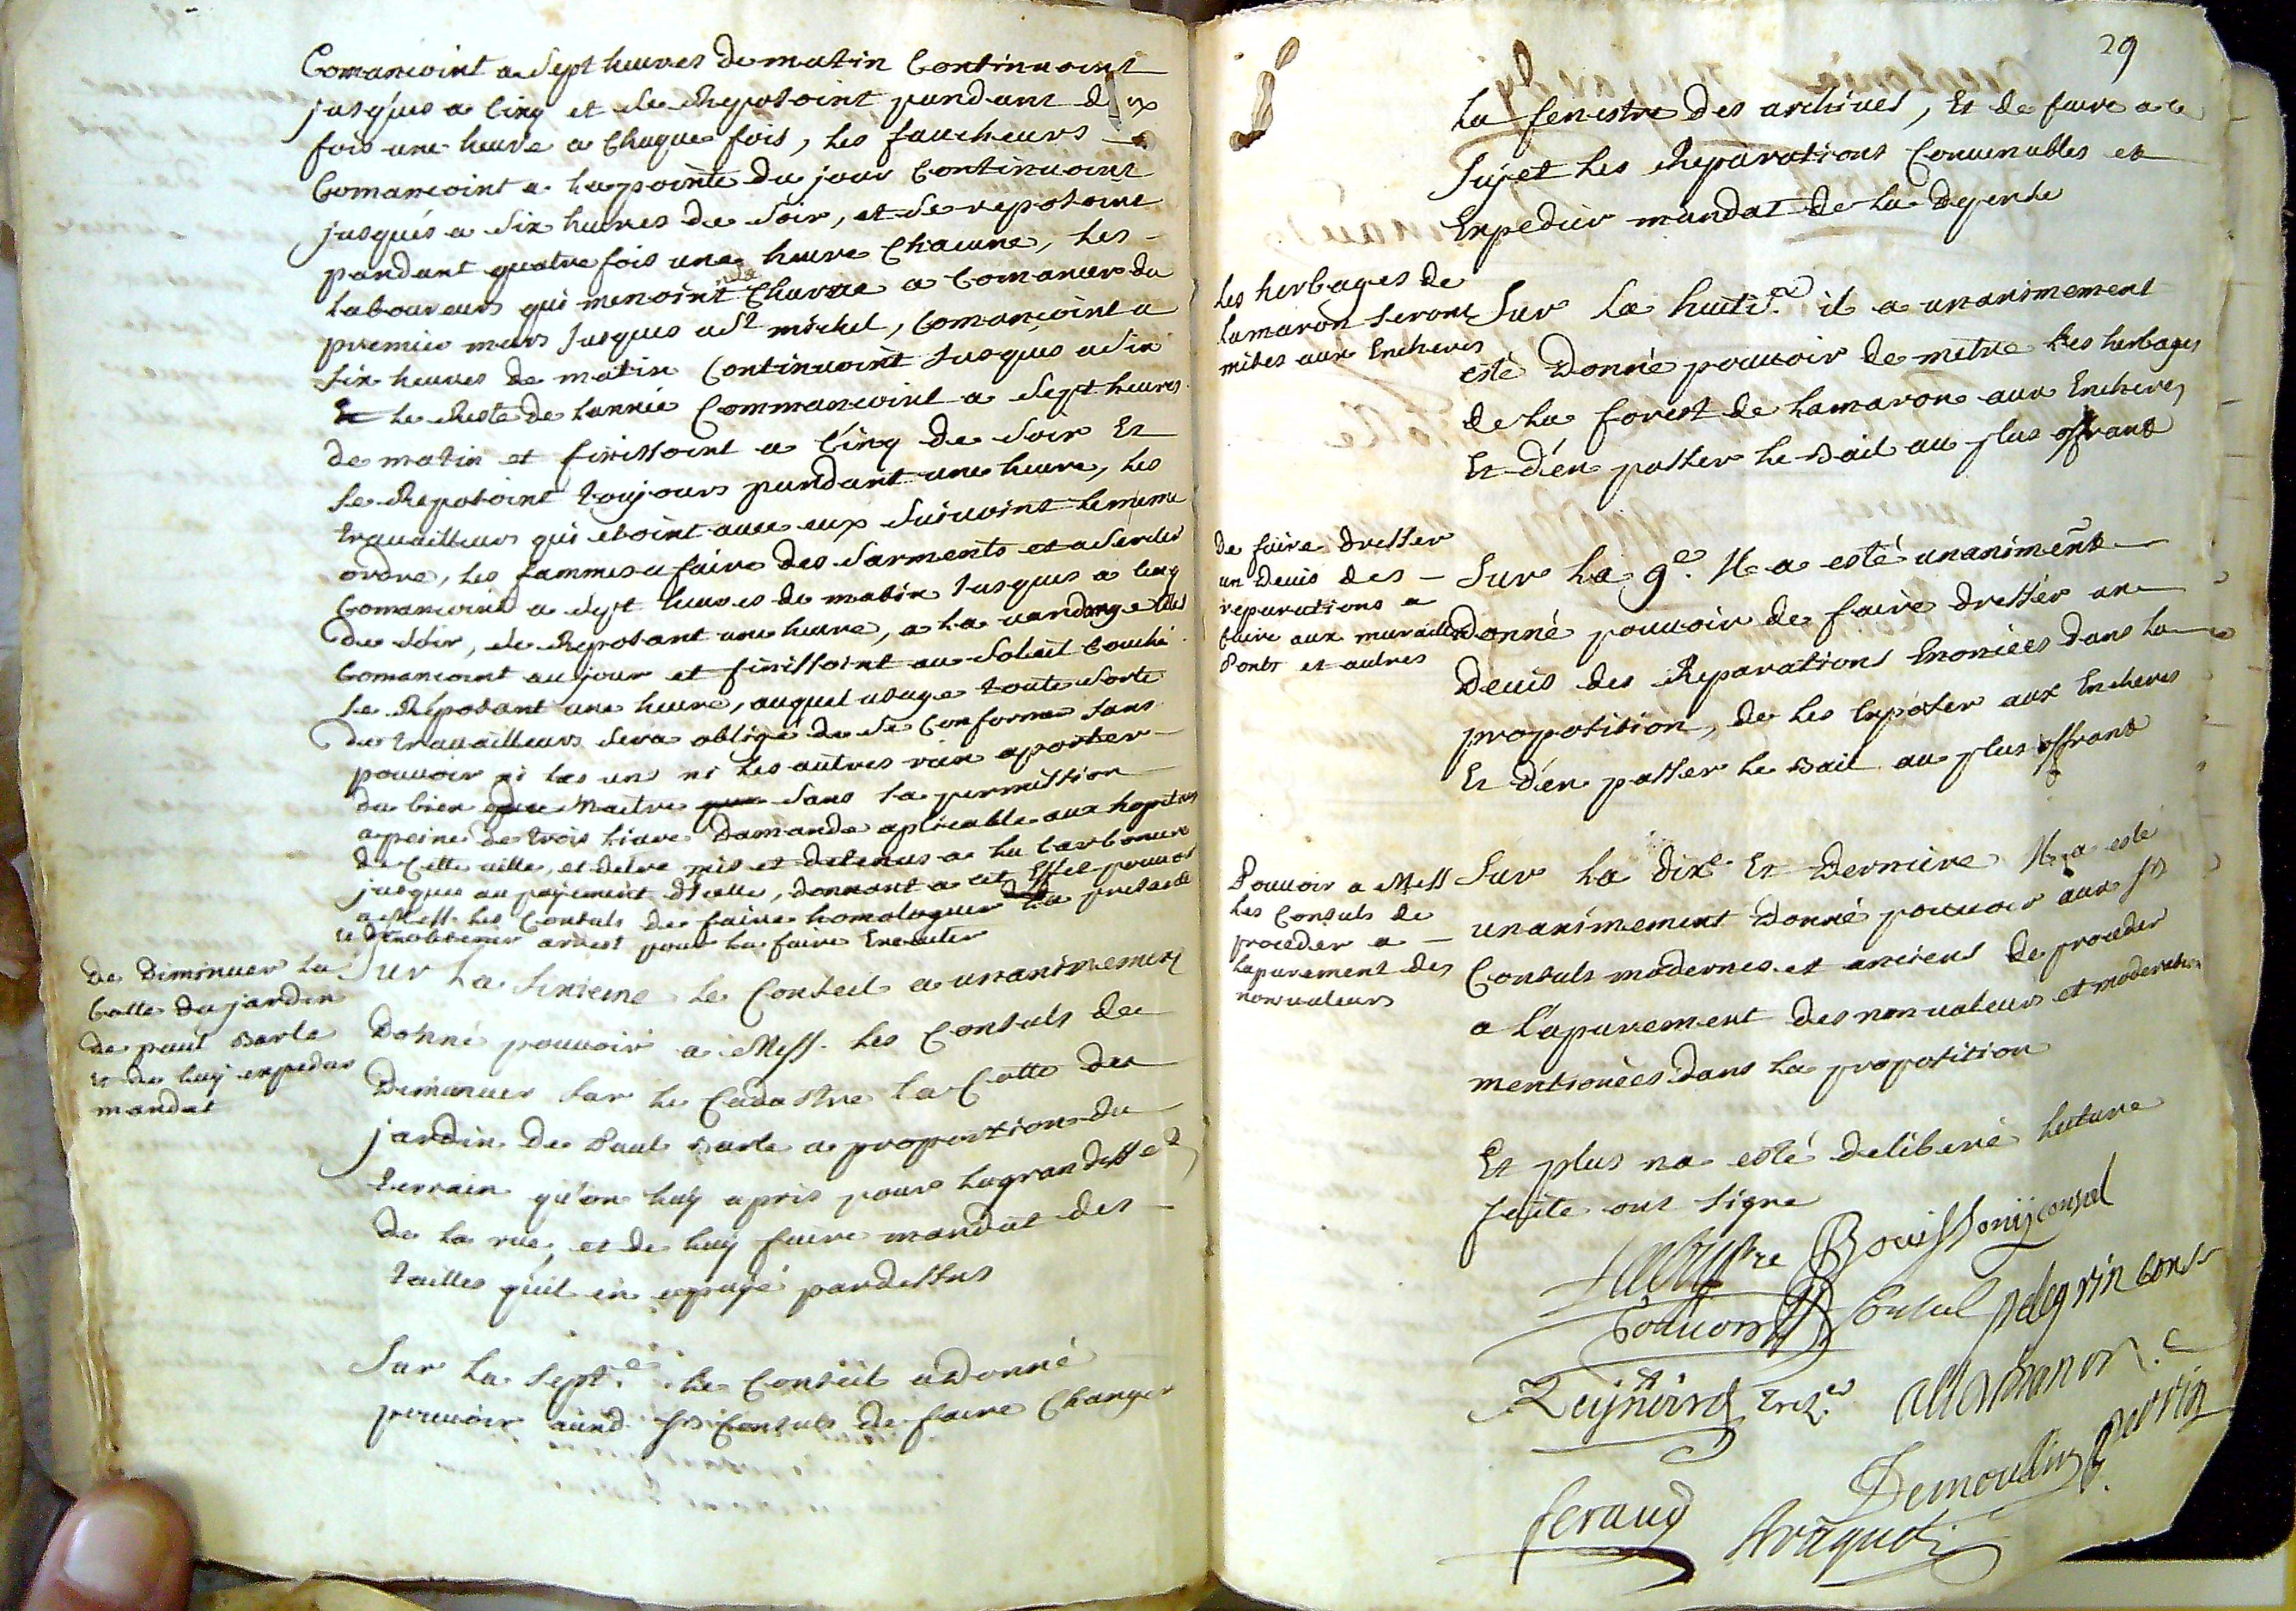 Comancoint a Sept heures du matin Continuoint
jusques a Cinq et se Reposoint pandant deux
fois une heure a Chaque fois, Les faucheurs
Comancoint a la pointe du jour Continuoint
jusques a Six heures du Soir, et se reposoint
pandant quatre fois une heure Chacune, Les
Laboureurs qui menoint Charrue a Comancer du
premier mars Jusques a St michel, Comancoint a
Six heures du matin Continuoint Jusques a Six
Et le Reste de Lannée Commancoint a Sept heures
du matin et finissoint a Cinq du Soir Et
se Reposoint toujours pandant une heure, Les
travailleurs qui etoint avec eux Suivoint le meme
ordre, Les fammes a faire des Sarments et a Sercler
Comancoint a Sept heures du matin Jusques a Cinq
du Soir, se Reposant une heure, a La vandange elles
Comancoint au jour et finissoint au Soleil Couché
se Reposant une heure, auquel usage toute Sorte
de travailleurs Sera obligé de se Conformer Sans
pouvoir ni Les un ni Les autres rien aporter
du bien du Maitre Sans Sa permission
a peine de trois Livre Damande aplicable aux hopitaux
de Cette ville, et detre mis et detenus a La
jusques au payement Dicelle, donnant a cet Effet pouvoir
a Mess. Les Consuls de faire homologuer La presante
et D'en obtenir arrest pour La faire Executer
De Diminuer La
Cotte du jardin
de paul Barle
Et de luy expedier
mandat
Sur La Sixieme Le Conseil a unanimement
Donné pouvoir a Mess. Les Consuls de
Diminuer Sur Le Cadastre La Cotte du
jardin de Paul Barle a proportion du
terrain qu'on luy a pris pour Lagrandisse.t
de La rue, et de luy faire mandat des
tailles qu'il en a payé pardessus
Sur La Sept.e Le Conseil a Donné
pouvoir aud. Srs Consuls de faire Changer
29
La fenestre des archives, Et de faire a ce
Sujet Les Reparations Convenables et
Expedier mandat de La Depense
Les herbages de
Lamaron Seront
mises aux Encheres
Sur La huiti.e il a unanimement
esté Donné pouvoir de metre Les herbages
de La forest de Lamaron aux Encheres
Et d'en passer Le Bail au plus offrant
De faire dresser
un Devis des
reparations a
faire aux murailles
Ponts et autres
Sur La 9.e Il a esté unaniment
donné pouvoir de faire dresser un
Devis des Reparations Enoncées dans La
proposition, de Les Exposer aux Encheres
Et d'en passer Le Bail au plus offrant
Pouvoir a Mess
Les Consuls de
proceder a
Lapurement des
nonvaleurs
Sur La Dix.e Et Derniere Il a esté
unanimement Donné pouvoir aux Srs
Consuls modernes et anciens De proceder
a L'apurement des nonvaleurs et moderations
mentionées dans La proposition
Et plus na esté deliberé Lecture
faite ont Signé
Bouissony consul
Consul pelegrin cons.
Reynoird Trez.r allamanon.
Demoulin perrin
feraud